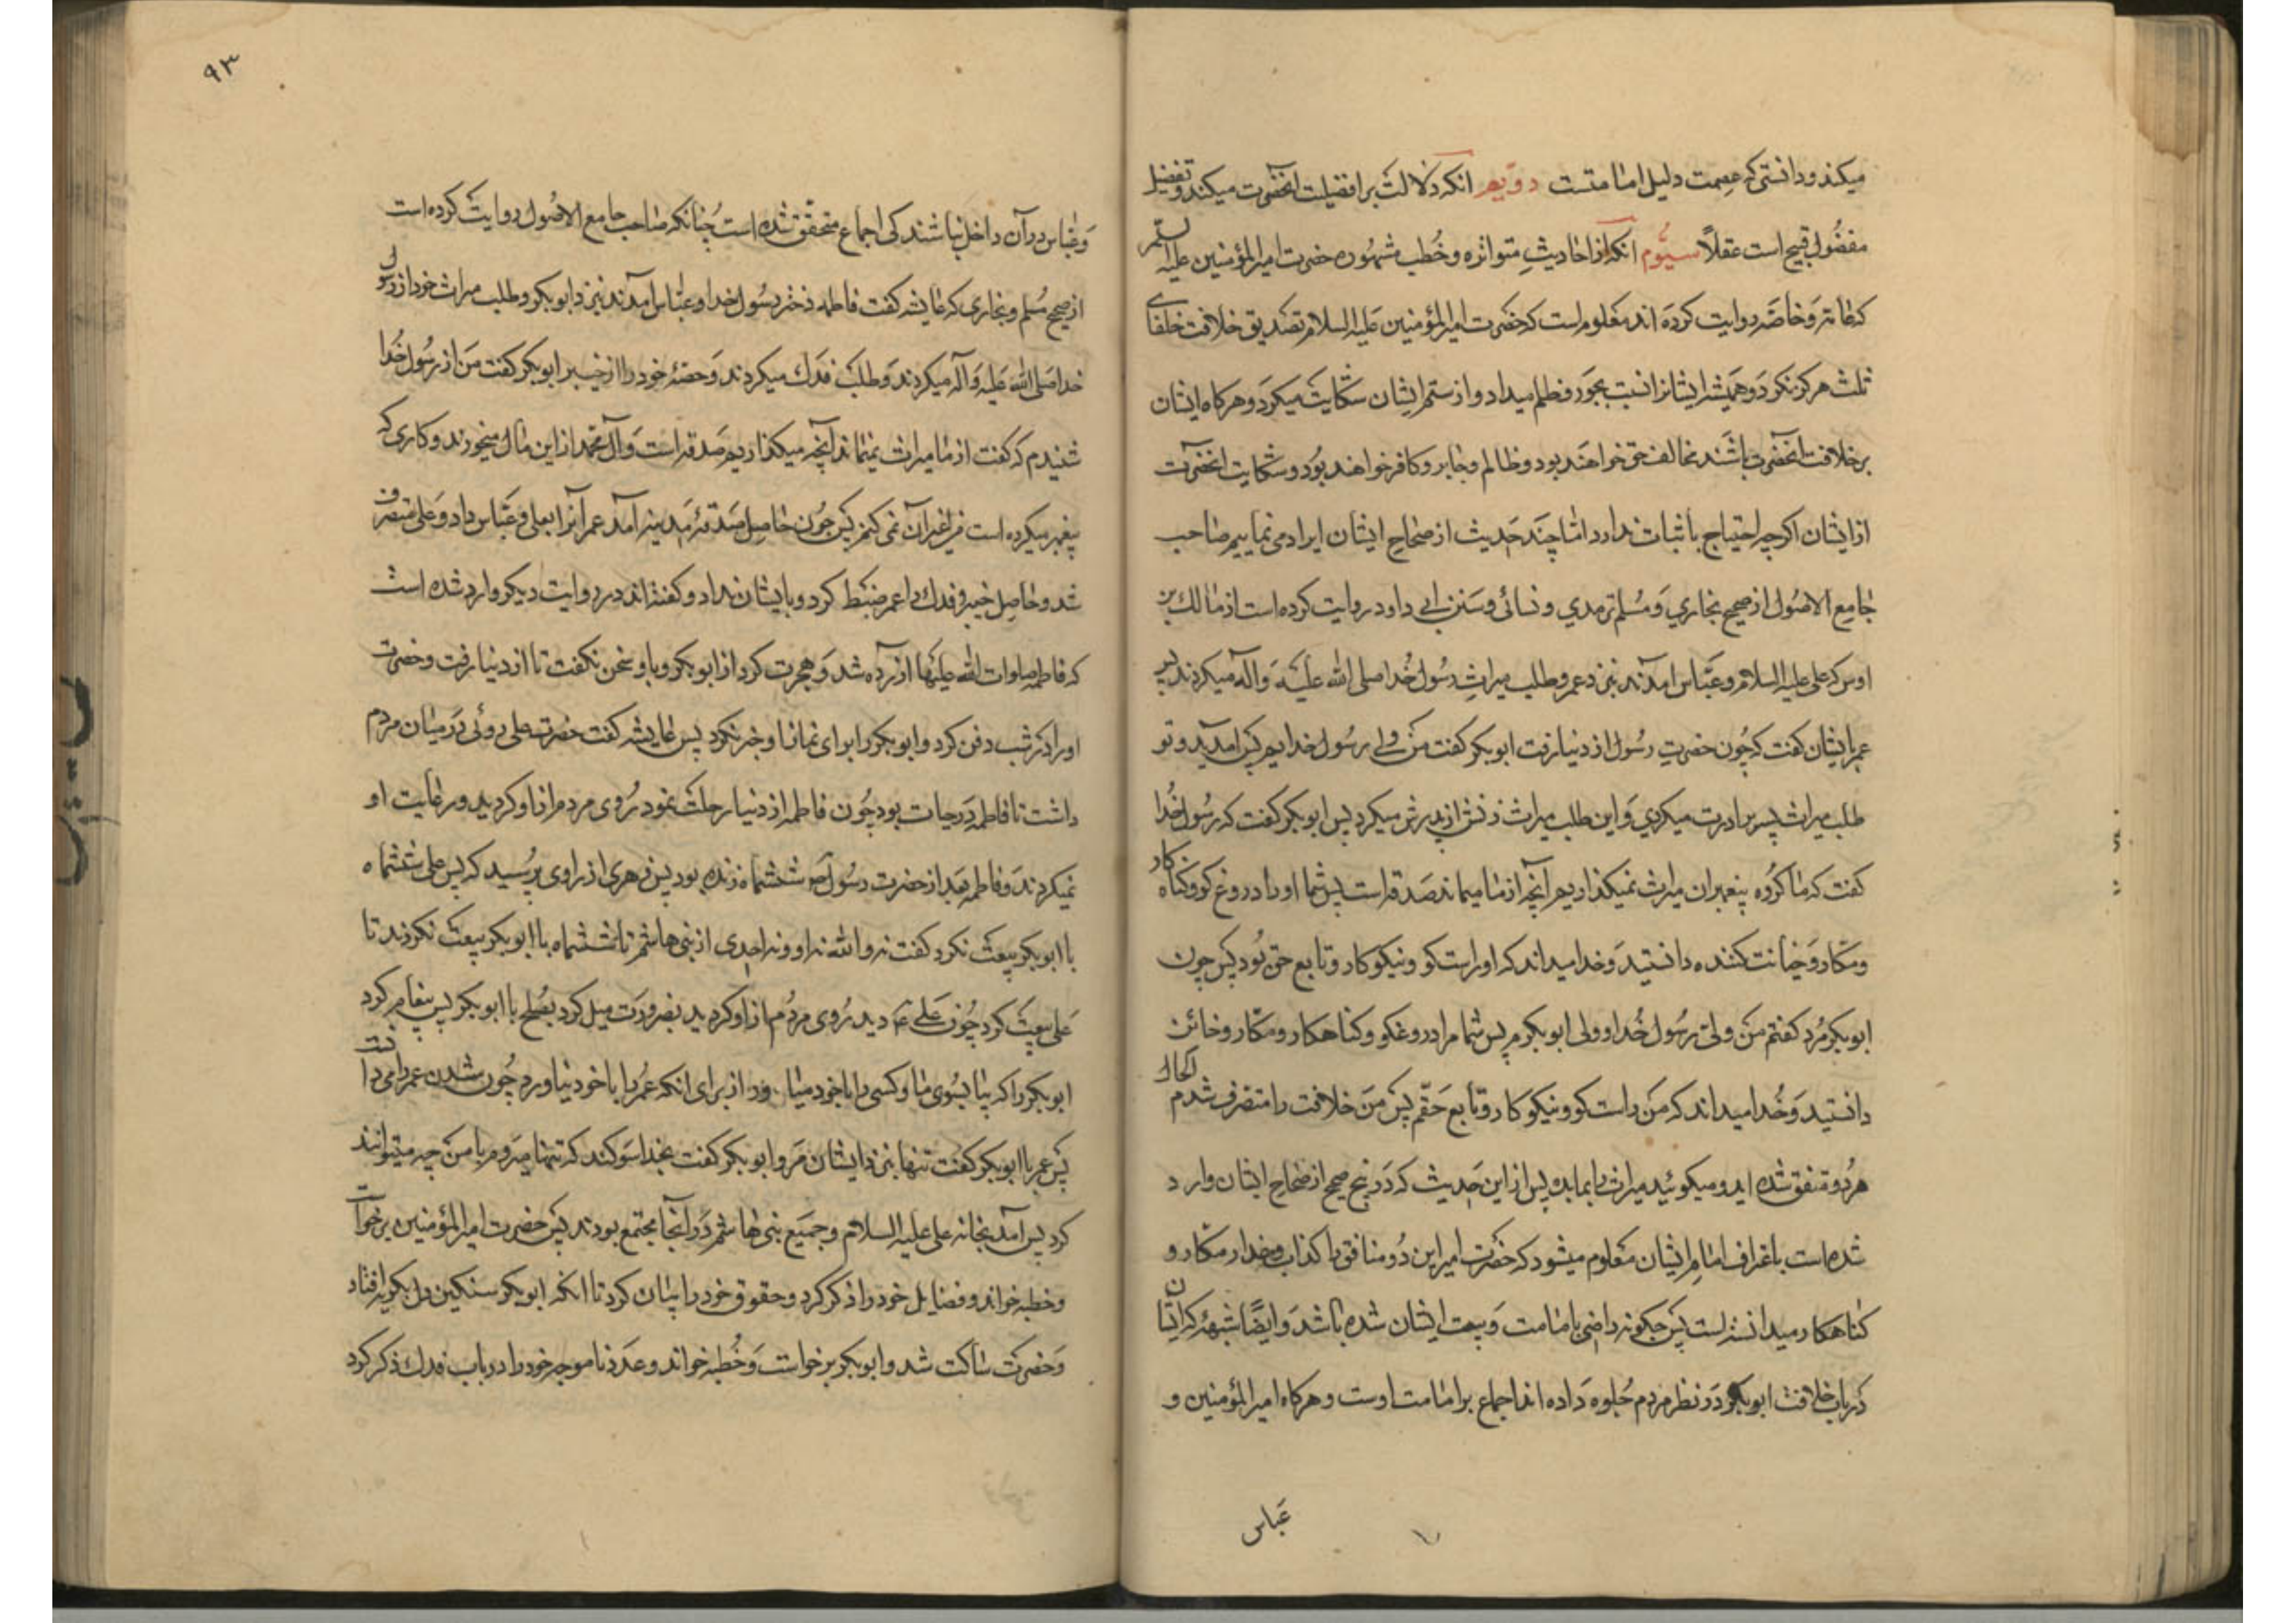 میکند و دانستی که عصمت دلیل امامتست دویم انکه دلالت بر افضلیت انحضرت میکند و تفضیل
مفضول قبیح است عقلاً سیّوم انکه از احادیث متواتره و خُطب مشهوره حضرت امیرالمؤمنین علیه السلم
که عامّه و خاصّه روایت کرده اند معلوم است که حضرت امیرالمؤمنین علیه السلام تصدیق خلافت خلفای
ثلث هرکز نکرد و همیشه ایشانرا نسبت بجور و ظلم میداد و از ستم ایشان شکایت میکرد و هرکاه ایشان
بر خلافت انحضرت باشند مخالف حق خواهند بود و ظالم و جابر و کافر خواهند بود و شکایت انحضرت
از ایشان اکرچه احتیاج باثبات ندارد امّا چند حدیث از صحاح ایشان ایراد می نماییم صاحب
جامع الاصول از صحیح بخاری و مسلم ترمدی و نسائی و سنن ابی داود روایت کرده است از مالک بن
اوس که علی علیه السلام و عبّاس امدند بنزد عمر و طلب میراث رسول خدا صلی الله علیه و اله میکردند پس
عمر بایشان کفت که چون حضرت رسول از دنیا رفت ابوبکر کفت من ولی رسول خدایم پس امدید و تو
طلب میراث پسر برادرت میکردی و این طلب میراث زنش از پدرش میکرد پس ابوبکر کفت که رسول خدا
کفت که ما کروه پیغمبران میراث نمیکذاریم آنچه از ما میماند صدقه است پس شما او را دروغ کو و کناه کار
و مکار و خیانت کننده دانستید و خدا میداند که او راست کو و نیکو کار و تابع حق بود پس چون
ابوبکر مُرد کفتم من ولی رسول خدا و ولی ابوبکرم پس شما مرا دروغکو و کناهکار و مکّار و خائن
دانستید و خدا میداند که من راست کو و نیکو کار و تابع حقّم پس من خلافت را متصرف شدم الحال
هر دو متفق شده اید و میکوئید میراث را بما بده پس از این حدیث که در پنج صحیح از صحاح ایشان وارد
شده است باعتراف امام ایشان معلوم میشود که حضرت امیر این دو منافق را کذاب و غدار مکار و
کناهکار میدانسته است پس چکونه راضی بامامت و بیعت ایشان شده باشد و ایضًا شبهۀ که ایشان
در باب خلافت ابوبکر در نظر مردم جلوه داده اند اجماع بر امامت اوست و هرکاه امیرالمؤمنین و
عباس
۹۳
و عبّاس در آن داخل نباشند کی اجماع متحقّق شده است چنانکه صاحب جامع الاصول روایت کرده است
از صحیح مسلم و بخاری که عایشه کفت فاطمه دختر رسول خدا و عبّاس امدند بنزد ابوبکر و طلب میراث خود از رسول
خدا صلی الله علیه و آله میکردند و طلب فدک میکردند و حصّۀ خود را از خیبر ابوبکر کفت من از رسول خدا
شنیدم که کفت از ما میراث نمیماند آنچه میکذاریم صدقه است و آل محمد از این مال میخورند و کاری که
پیغمبر میکرده است من غیر آن نمی کنم پس چون حاصل صدقۀ مدینه آمد عمر آنرا بعلی و عبّاس داد و علی متصرف
شد و حاصل خیبر و فدک را عمر ضبط کرد و بایشان نداد و کفته اند در روایت دیکر وارد شده است
که فاطمه صلوات الله علیها آزرده شد و هجرت کرد از ابوبکر و با او سخن نکفت تا از دنیا رفت و حضرت
او را در شب دفن کرد و ابوبکر را برای نماز او خبر نکرد پس عایشه کفت حضرت علی روئی در میان مردم
داشت تا فاطمه در حیات بود چون فاطمه از دنیا رحلت نمود روی مردم از او کردید و رعایت او
نمیکردند و فاطمه بعد از حضرت رسول ص ششماه زنده بود پس زهری از راوی پرسید که پس علی ششماه
با ابوبکر بیعت نکرد کفت نه والله نه او و نه احدی از بنی هاشم تا ششماه با ابوبکر بیعت نکردند تا
علی بیعت کرد چون علی ع دید روی مردم از او کردید بضرورت میل کرد بصلح با ابوبکر پس پیغام کرد
ابوبکر را که بیا بسوی ما و کسی را با خود میاور از برای انکه عمر را با خود نیاورد چون شدت عمر را می دانست
پس عمر با ابوبکر کفت تنها بنزد ایشان مرو ابوبکر کفت بخدا سوکند که تنها میروم با من چه میتوانند
کرد پس آمد بخانه علی علیه السلام و جمیع بنی هاشم در آنجا مجتمع بودند پس حضرت امیرالمؤمنین برخواست
و خطبه خواند و فضایل خود را ذکر کرد و حقوق خود را بیان کرد تا انکه ابوبکر سنکین دل بکریه افتاد
و حضرت ساکت شد و ابوبکر برخواست و خُطبه خواند و عذر ناموجه خود را در باب فدک ذکر کرد